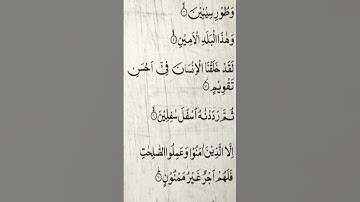 وَطُوْرِ سِيْنِيْنَ ۙ
وَهٰذَا الْبَلَدِ الْاَمِيْنِ ۙ
لَقَدْ خَلَقْنَا الْاِنْسَانَ فِيْۤ اَحْسَنِ
تَقْوِيْمٍ ۙ
ثُمَّ رَدَدْنٰهُ اَسْفَلَ سٰفِلِيْنَ ۙ
اِلَّا الَّذِيْنَ اٰمَنُوْا وَعَمِلُوا الصّٰلِحٰتِ
فَلَهُمْ اَجْرٌ غَيْرُ مَمْنُوْنٍ ۙ